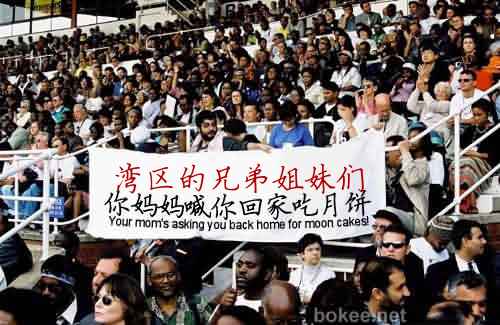 湾区的兄弟姐妹们
你妈妈喊你回家吃月饼
Your mom's asking you back home for moon cakes!
bokee.net